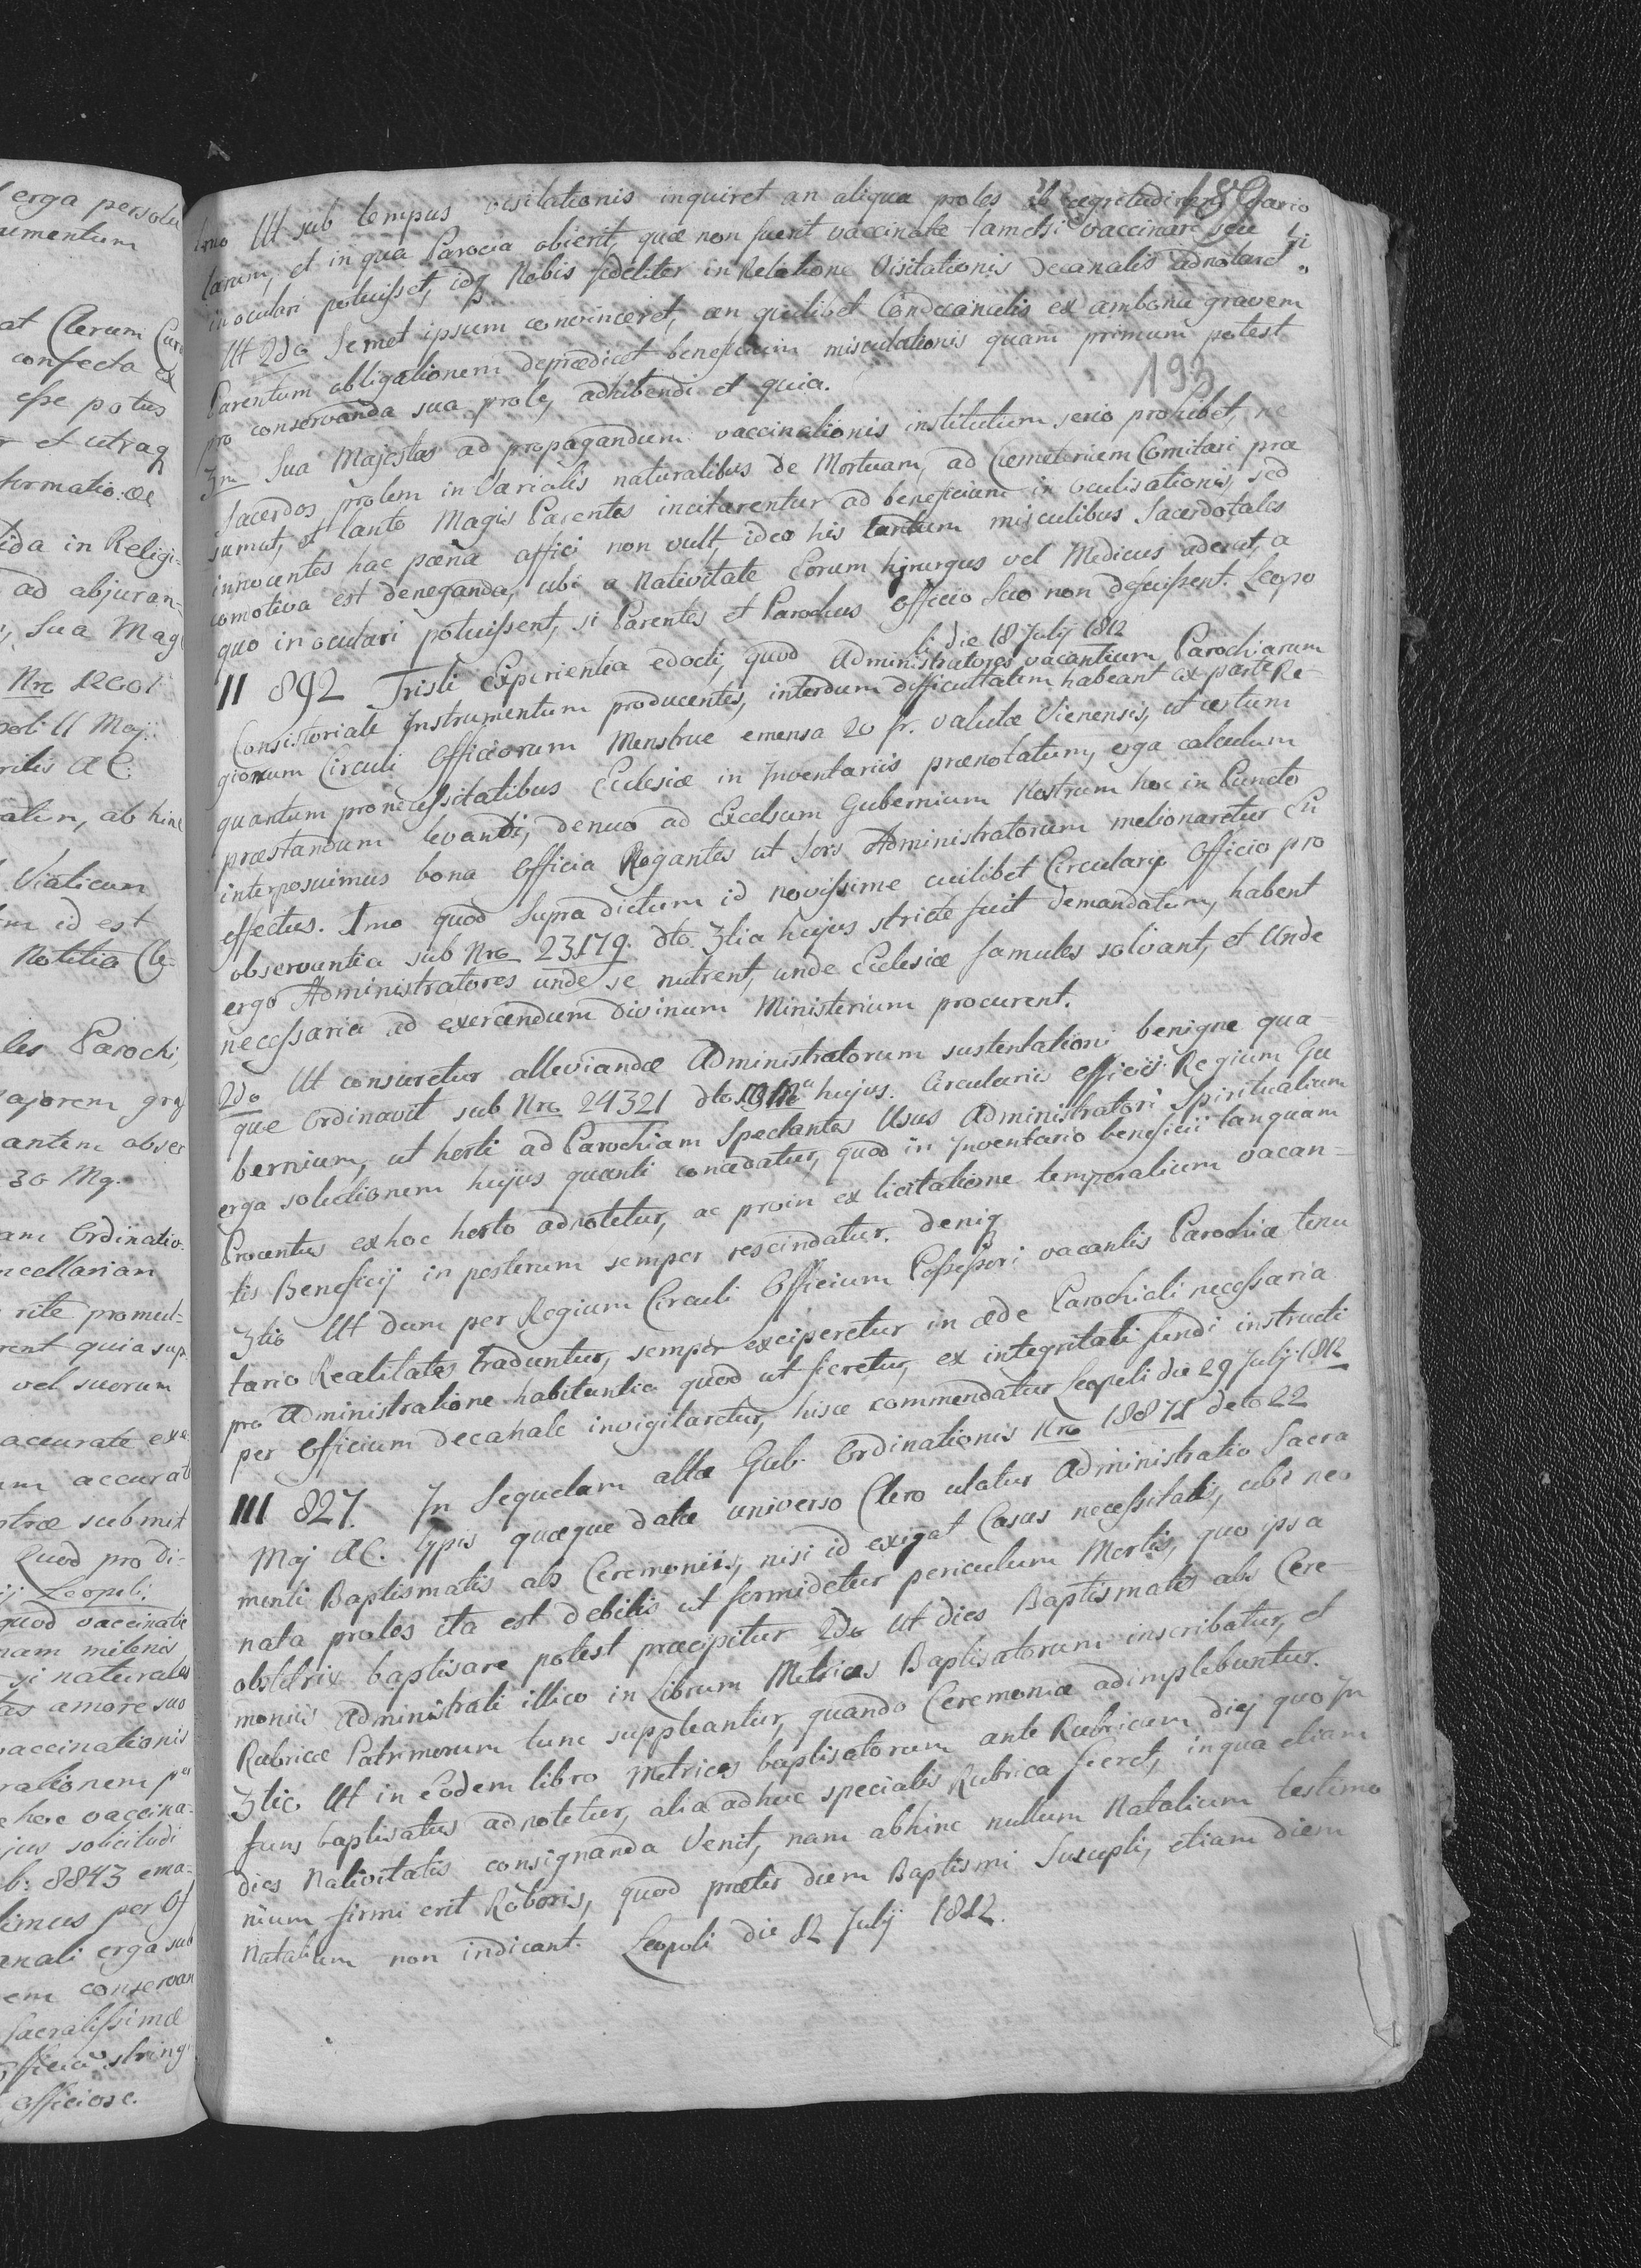 erga persolu
umentum
at Clerum Cur
confecta ex
esse potus
r et utraq
formatio. ac
ida in Religi-
ad abjuran-
Sua Mag
Nro 12601
poli 11 Maj.
rilis AC.
alin, ab hinc
Vialicum
m id est
Notitia Cle-
les Parochi,
ajorem
antem obser
30 Mg.
am Ordinatio-
ncellariam
rite promul-
rent quia sup.
vel suorum
accurate exa
um accurat
stræ submit
Quod pro di-
ij Leopoli:
quod vaccinatio
nam
si naturales
as amore suo
vaccinationis
rationem
hoc vaccina-
jus solicitudi
b: 8843 ema-
limus per Of
anali erga sub
em conservan
Sacratissimæ
officia string
officiose.
189
1mo Ut sub tempus visitationis inquiret an aliqua proles ab ægritudinem Vario
larum, et in qua Parocia obierit, quæ non fuerit vaccinata tametsi vaccinari seu
inoculari potuisset, idq Nobis fideliter in Relatione Visitationis Decanalis adnotaret.
Ut 2do Semet ipsum convinceret, an quilibet Condecanalis ex ambona gravem
Parentum obligationem deprædicet beneficium misculationis quam primum potest
pro conservanda sua prole, adhibendi et quia.
193
3m Sua Majestas ad propagandum vaccinationis institutum serio prohibet, ne
Sacerdos prolem in Variolis naturalibus de Mortuam, ad Cæmeterium Comitari præ
sumat, et tanto Magis Parentes incitarentur ad beneficium in oculisationis, sed
innocentes hac pœna affici non vult, ideo his tantum misculibus Sacerdotales
comotiva est deneganda, ubi a Nativitate Eorum hyrurgus vel Medicus aderat, a
quo inoculari potuissent, si Parentes et Parochus Officio Suo non defuissent. Leopo
li die 18 July 1812
II 892 Tristi Experientia edocti, quod Administratores vacantium Parochiarum
Consistoriale Instrumentum producentes, interdum difficultatem habeant ex parte Re-
gionum Circuli Officiorum Menstrue emensa 20 fr. valutæ Vienensis, ut æstum
quantum pro necessitatibus Ecclesiæ in Inventariis prænotatum, erga calculum
præstandum levandi, denuo ad Excelsum Gubernium Nostrum hoc in Puncto
interposuimus bona Officia Rogantes ut Sors Administratorum melionaretur En
effectus. 1mo quod Supra dictum id novissime cuilibet Circulari Officio pro
observantia sub Nro 23179. dto 3tia hujus stricte fuit demandatum, habent
ergo Administratores unde se nutrent, unde Ecclesiæ famulos solvant, et Unde
necessaria ad exercendum Divinum Ministerium procurent.
2do Ut consuretur alleviandæ Administratorum sustentationi benigne qua-
que Ordinavit sub Nro 24321 dto hujus. Circulariis Officiis Regium Gu
bernium, ut horti ad Parochiam Spectantes Usus Administratori Spiritualium
erga solutionem hujus quanti concedatur, quod in Inventario beneficii tanquam
Procentus ex hoc horto adnotetur, ac proin ex licitatione temporalium vacan-
tis Beneficij in posterum semper rescindatur. deniq
3tio Ut dum per Regium Circuli Officium Possessori vacantis Parochiæ tenu
tario Realitates traduntur, semper exciperetur in æde Parochiali necessaria
pro Administratione habitantia quod ut fieretur, ex integritati fundi instructi
per Officium Decanale invigilaretur, hisce commendatur Leopoli die 29 July 1812
III 827. In Sequelam altæ Gub. Ordinationis Nro 18871 de to 22
Maj AC. typis quæque datæ universo Clero utatur Administratio Sacra
menti Baptismatis ab Ceremoniis, nisi id exigat Casus necessitatis, ubi neo
nata proles ita est debilis ut formidetur periculum Mortis, quo ipsa
obstetrix baptisare potest præcipitur 2do Ut dies Baptismatis abs Cere-
moniis Administrati illico in Librum Metrices Baptisatorum inscribatur, et
Rubricæ Patrimorum tunc suppleantur, quando Ceremoniæ adimplebuntur.
3tio Ut in Eodem libro Metrices baptisatorum ante Rubricam diej quo In
fans baptisatus adnotetur, alia adhuc specialis Rubrica fieret, in qua etiam
dies Nativitatis consignanda Venit, nam abhinc nullum Natalium testimo
nium firmi erit Roboris, quod præter diem Baptismi Suscepti, etiam diem
Natalium non indicant. Leopoli die 12 July 1812.